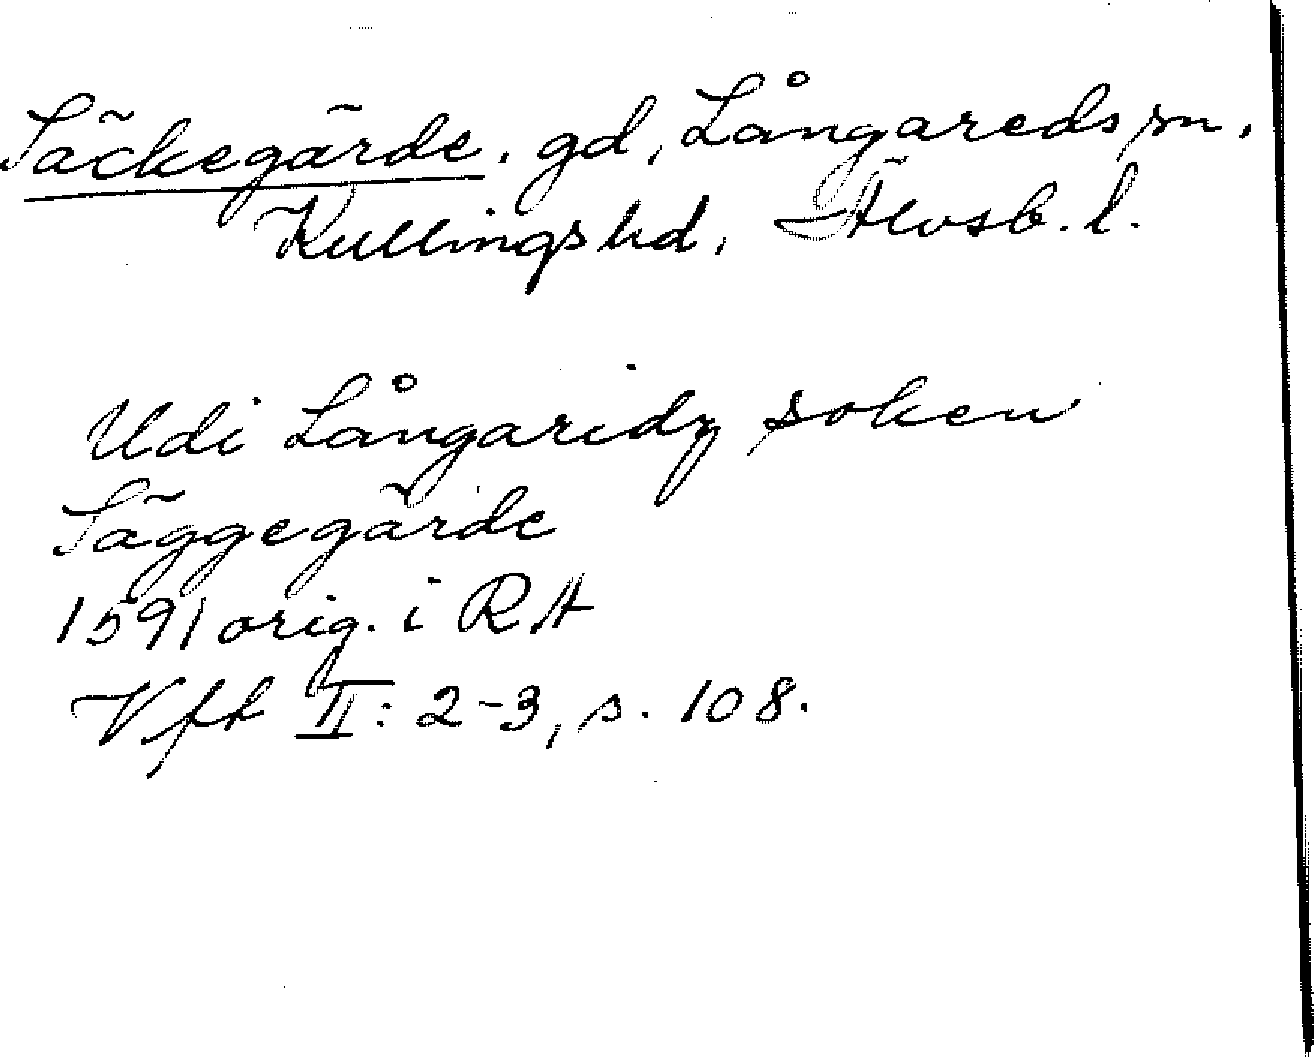 Säckegärde. gd, Långareds sn.
Kullings hd, Älvsb. l.
Udi Långaridz soken
Säggegärde
1591 orig. i RA
Vft II: 2-3, s. 108.